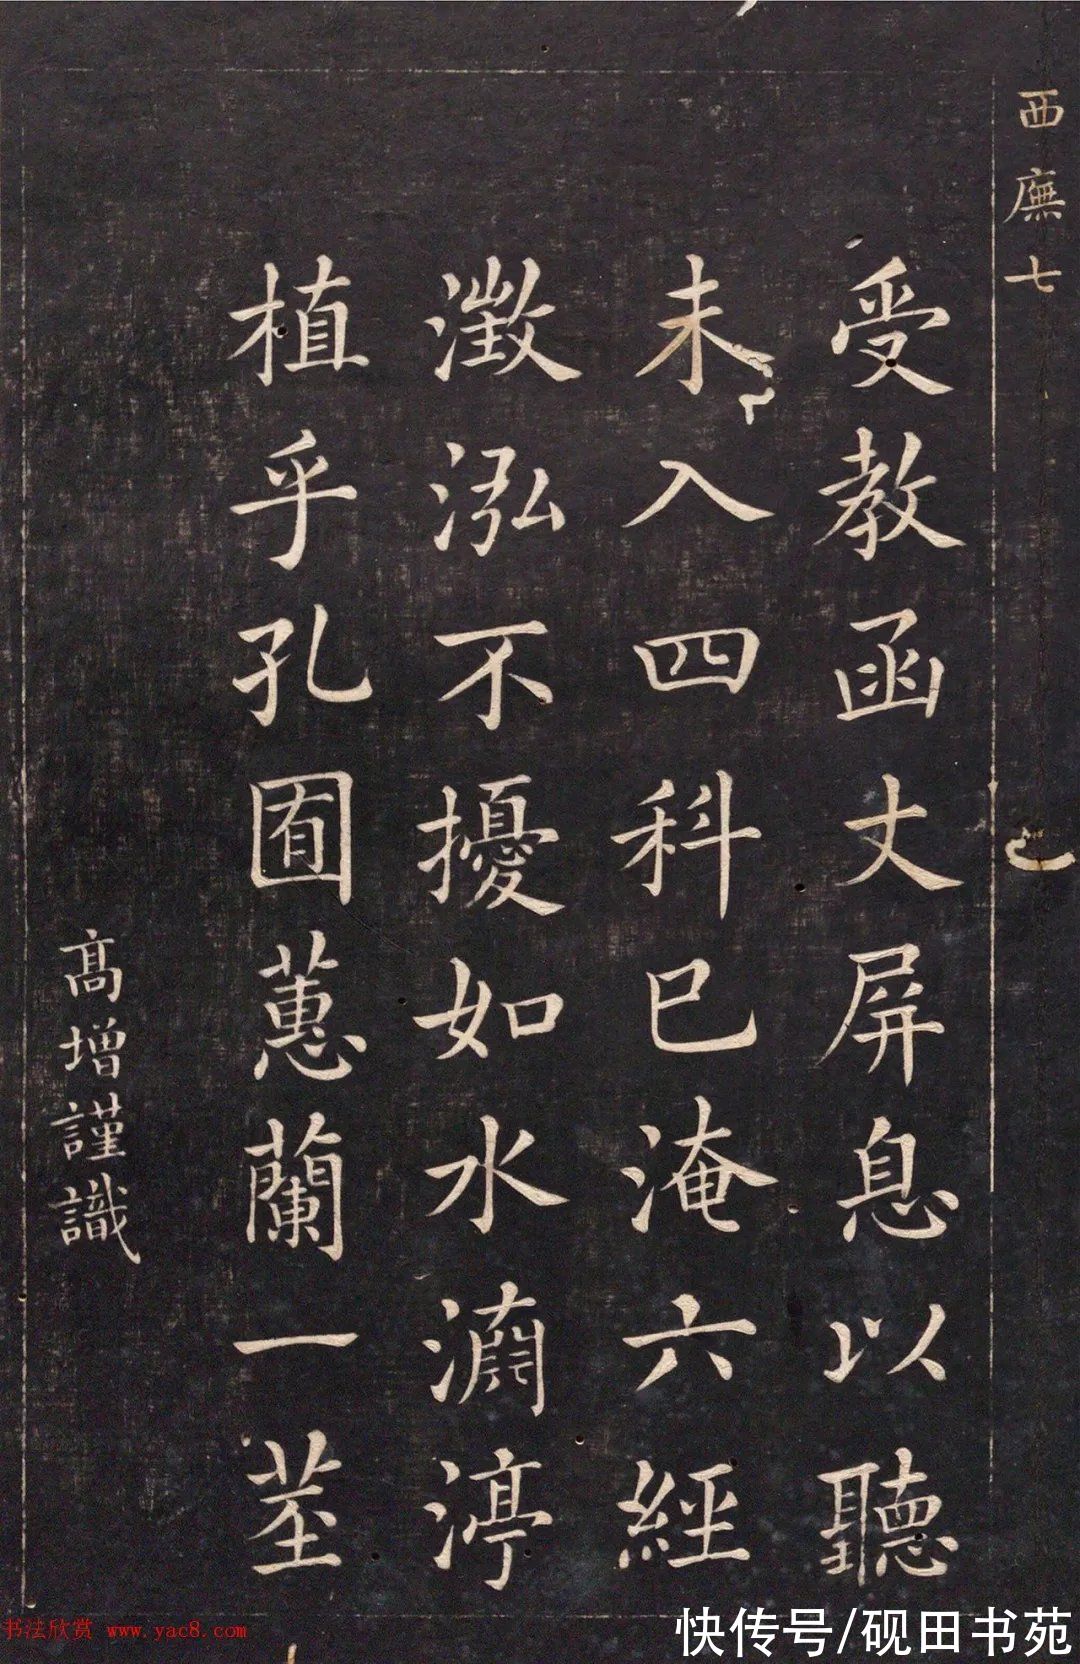 西廡七
受教函丈屏息以聽
未入四科已淹六經
澂泓不擾如水淵渟
植乎孔囿蕙蘭一莖
高增謹識
书法欣赏 www.yac8.com
快传号/砚田书苑